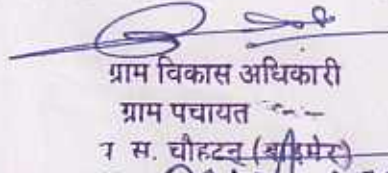 ग्राम विकास अधिकारी
ग्राम पचायत
स. चौहटन (बाड़मेर)